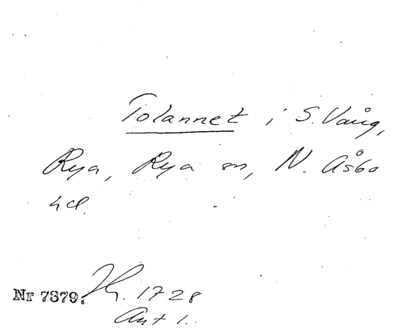 Tolannet i S. Vång,
Rya, Rya sn, N. Åsbo
hd.
Nr 7379. Jh. 1728
Akt 1.